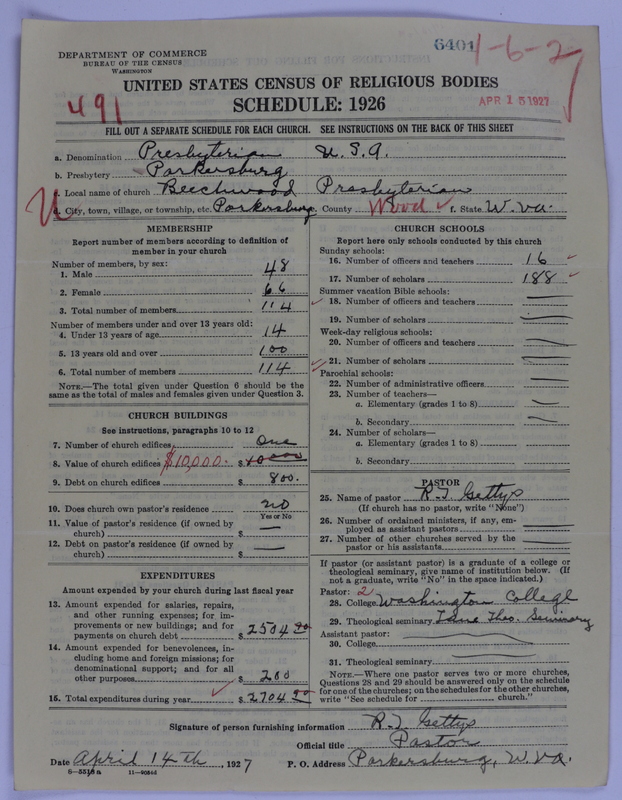 DEPARTMENT OF COMMERCE
BUREAU OF THE CENSUS
WASHINGTON
6401
1-6-2
491
UNITED STATES CENSUS OF RELIGIOUS BODIES
SCHEDULE: 1926
APR 15 1927
FILL OUT A SEPARATE SCHEDULE FOR EACH CHURCH. SEE INSTRUCTIONS ON THE BACK OF THIS SHEET
a. Denomination Presbyterian U.S.A.
b. Presbytery Parkersburg
c. Local name of church Beechwood Presbyterian
d. City, town, village, or township, etc. Parkersburg County Wood f. State W. Va.
MEMBERSHIP
Report number of members according to definition of member in your church
Number of members, by sex:
1. Male 48
2. Female 66
3. Total number of members 114
Number of members under and over 13 years old:
4. Under 13 years of age 14
5. 13 years old and over 100
6. Total number of members 114
NOTE.—The total given under Question 6 should be the same as the total of males and females given under Question 3.
CHURCH BUILDINGS
See instructions, paragraphs 10 to 12
7. Number of church edifices One
8. Value of church edifices $10,000. $ 10000
9. Debt on church edifices $ 800.
10. Does church own pastor's residence no
Yes or No
11. Value of pastor's residence (if owned by church) $ —
12. Debt on pastor's residence (if owned by church) $ —
EXPENDITURES
Amount expended by your church during last fiscal year
13. Amount expended for salaries, repairs, and other running expenses; for improvements or new buildings; and for payments on church debt $ 2504.00
14. Amount expended for benevolences, including home and foreign missions; for denominational support; and for all other purposes $ 200
15. Total expenditures during year $ 2704.00
CHURCH SCHOOLS
Report here only schools conducted by this church
Sunday schools:
16. Number of officers and teachers 16
17. Number of scholars 188
Summer vacation Bible schools:
18. Number of officers and teachers —
19. Number of scholars —
Week-day religious schools:
20. Number of officers and teachers —
21. Number of scholars —
Parochial schools:
22. Number of administrative officers —
23. Number of teachers—
a. Elementary (grades 1 to 8) —
b. Secondary —
24. Number of scholars—
a. Elementary (grades 1 to 8)
b. Secondary
PASTOR
25. Name of pastor R. I. Gettys
(If church has no pastor, write "None")
26. Number of ordained ministers, if any, employed as assistant pastors —
27. Number of other churches served by the pastor or his assistants —
If pastor (or assistant pastor) is a graduate of a college or theological seminary, give name of institution below. (If not a graduate, write "No" in the space indicated.)
Pastor: 2
28. College Washington College
29. Theological seminary Theo. Seminary
Assistant pastor:
30. College —
31. Theological seminary —
NOTE.—Where one pastor serves two or more churches, Questions 28 and 29 should be answered only on the schedule for one of the churches; on the schedules for the other churches, write "See schedule for church."
Signature of person furnishing information R. I. Gettys
Official title Pastor
Date April 14th, 1927 P. O. Address Parkersburg, W. Va.